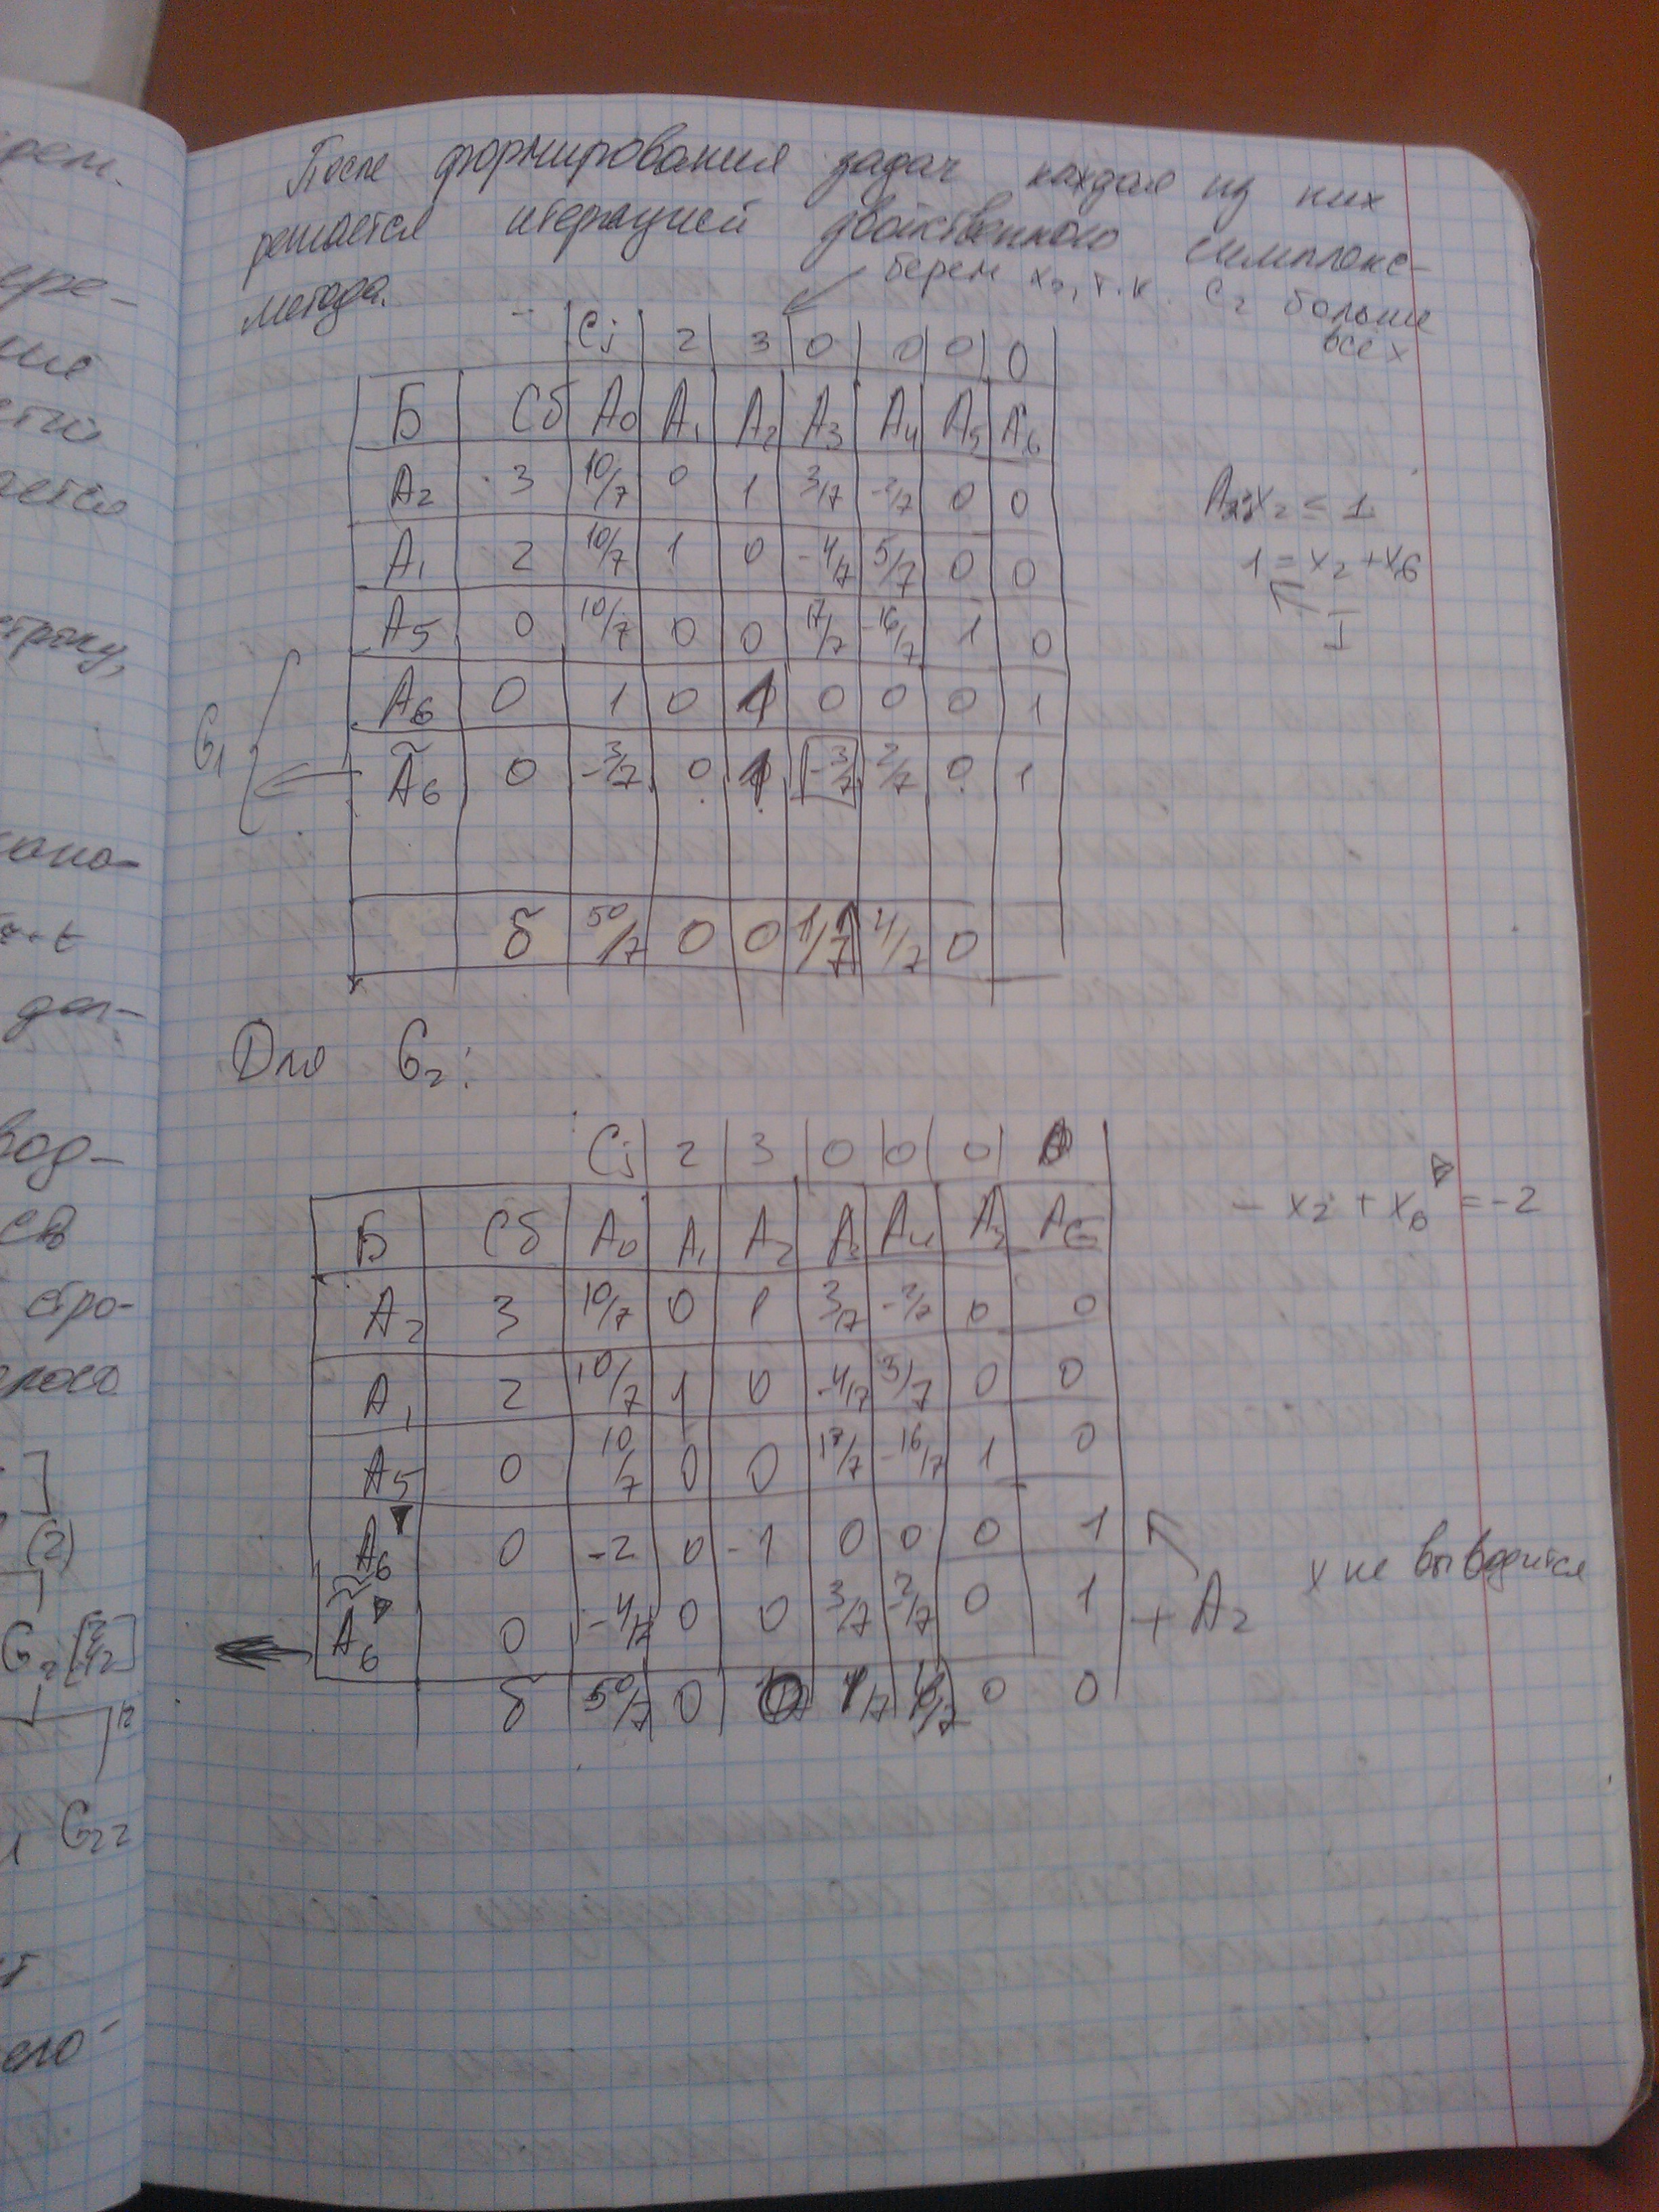 После формирования задач каждая из них
решается итерацией двойственного симплекс-
метода.
берем x₂, т.к. C₂ больше
всех
Cj 2 3 0 0 0 0
Б Сб A₀ A₁ A₂ A₃ A₄ A₅ A₆
A₂ 3 10/7 0 1 3/7 -2/7 0 0
A₁ 2 10/7 1 0 -4/7 5/7 0 0
A₅ 0 10/7 0 0 17/7 -16/7 1 0
A₆ 0 1 0 1 0 0 0 1
Ã₆ 0 -3/7 0 -3/7 2/7 0 1
δ 50/7 0 0 1/7 4/7 0
G₁
x₂ ≤ 1
1 = x₂ + x₆
I
Для G₂:
Cj 2 3 0 0 0
− x₂ + x₆ = −2
Б Сб A₀ A₁ A₂ A₃ A₄ A₅ A₆
A₂ 3 10/7 0 1 3/7 -2/7 0 0
A₁ 2 10/7 1 0 -4/7 5/7 0 0
A₅ 0 10/7 0 0 17/7 -16/7 1 0
A₆ 0 -2 0 -1 0 0 0 1
A₆ 0 -4/7 0 0 3/7 -2/7 0 1
+ A₂
x не выводится
δ 50/7 0 0 1/7 0 0
рем.
ере-
ние
ается
строку,
доп-
вод-
стро-
(2)
G₂
G₂₂